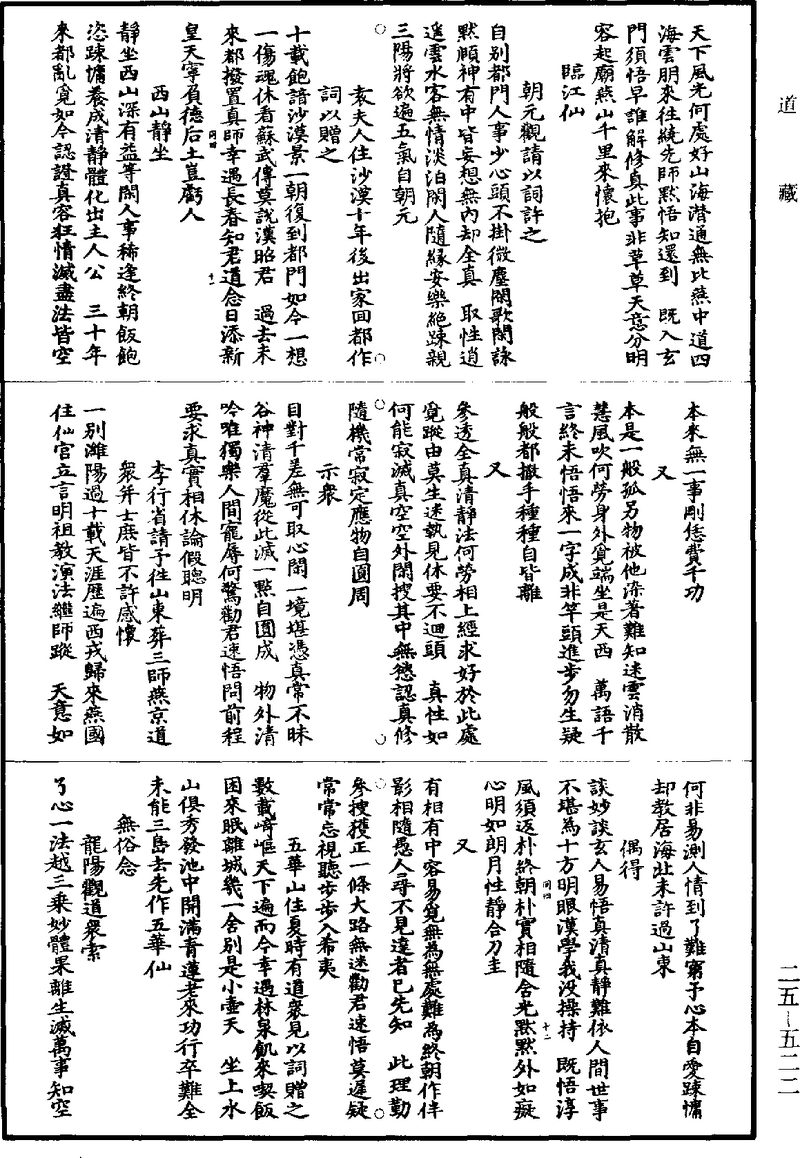 道藏
天下風光何處好山海潛通無比燕中道四
海雲朋來往繞先師黙悟知還到　既入玄
門須悟早誰解修真此事非草草天意分明
容起廟燕山千里來懷抱
臨江仙
朝元觀請以詞許之
自別都門人事少心頭不掛微塵閑歌閑詠
黙頤神有中皆妄想無內却全真　取性逍
遥雲水客無情淡泊閑人隨緣安樂絶踈親
三陽將欲遍五氣自朝元
袁夫人住沙漠十年後出家回都作
詞以贈之
十載飽諳沙漠景一朝復到都門如今一想
一傷魂休看蘇武傳莫說漢昭君　過去未
來都撥置真師幸遇長春知君道念日添新
皇天寧負德后土豈虧人
西山靜坐
靜坐西山深有益等閑人事稀逢終朝飯飽
恣踈慵養成清靜體化出主人公　三十年
來都亂覓如今認證真容狂情滅盡法皆空
本來無一事剛恁費千功
又
本是一般孤另物被他染著難知迷雲消散
慧風吹何勞身外覓端坐是天西　萬語千
言終未悟悟來一字成非竿頭進步勿生疑
般般都撒手種種自皆離
又
參透全真清靜法何勞相上經求好於此處
覓蹤由莫生迷執見休要不迴頭　真性如
何能寂滅真空空外閑搜其中無慾認真修
隨機常寂定應物自圓周
示衆
目對千差無可取心閑一境堪憑真常不昧
谷神清羣魔從此滅一點自圓成　物外清
吟唯獨樂人間寵辱何驚勸君速悟問前程
要求真實相休論假聰明
李行省請予徃山東葬三師燕京道
衆并士庶皆不許感懷
一別濰陽過十載天涯歷遍西戎歸來燕國
住仙宮立言明祖教演法繼師蹤　天意如
何非易測人情到了難窮予心本自愛踈慵
却教居海北未許過山東
偶得
談妙談玄人易悟真清真靜難依人間世事
不堪為十方明眼漢學我没操持　既悟淳
風須返朴終朝朴實相隨含光黙黙外如癡
心明如朗月性靜合刀圭
又
有相有中容易覓無為無處難為終朝作伴
影相隨愚人尋不見達者已先知　此理勤
參搜獲正一條大路無迷勸君速悟莫遲疑
常常忘視聽步步入希夷
五華山住夏時有道衆見以詞贈之
數載崎嶇天下遍而今幸遇林泉飢來喫飯
困來眠離城幾一舍別是小壷天　坐上水
山俱秀發池中開滿青蓮老來功行卒難全
未能三島去先作五華仙
無俗念
龍陽觀道衆索
了心一法越三乗妙體果離生滅萬事知空
二五—五二二